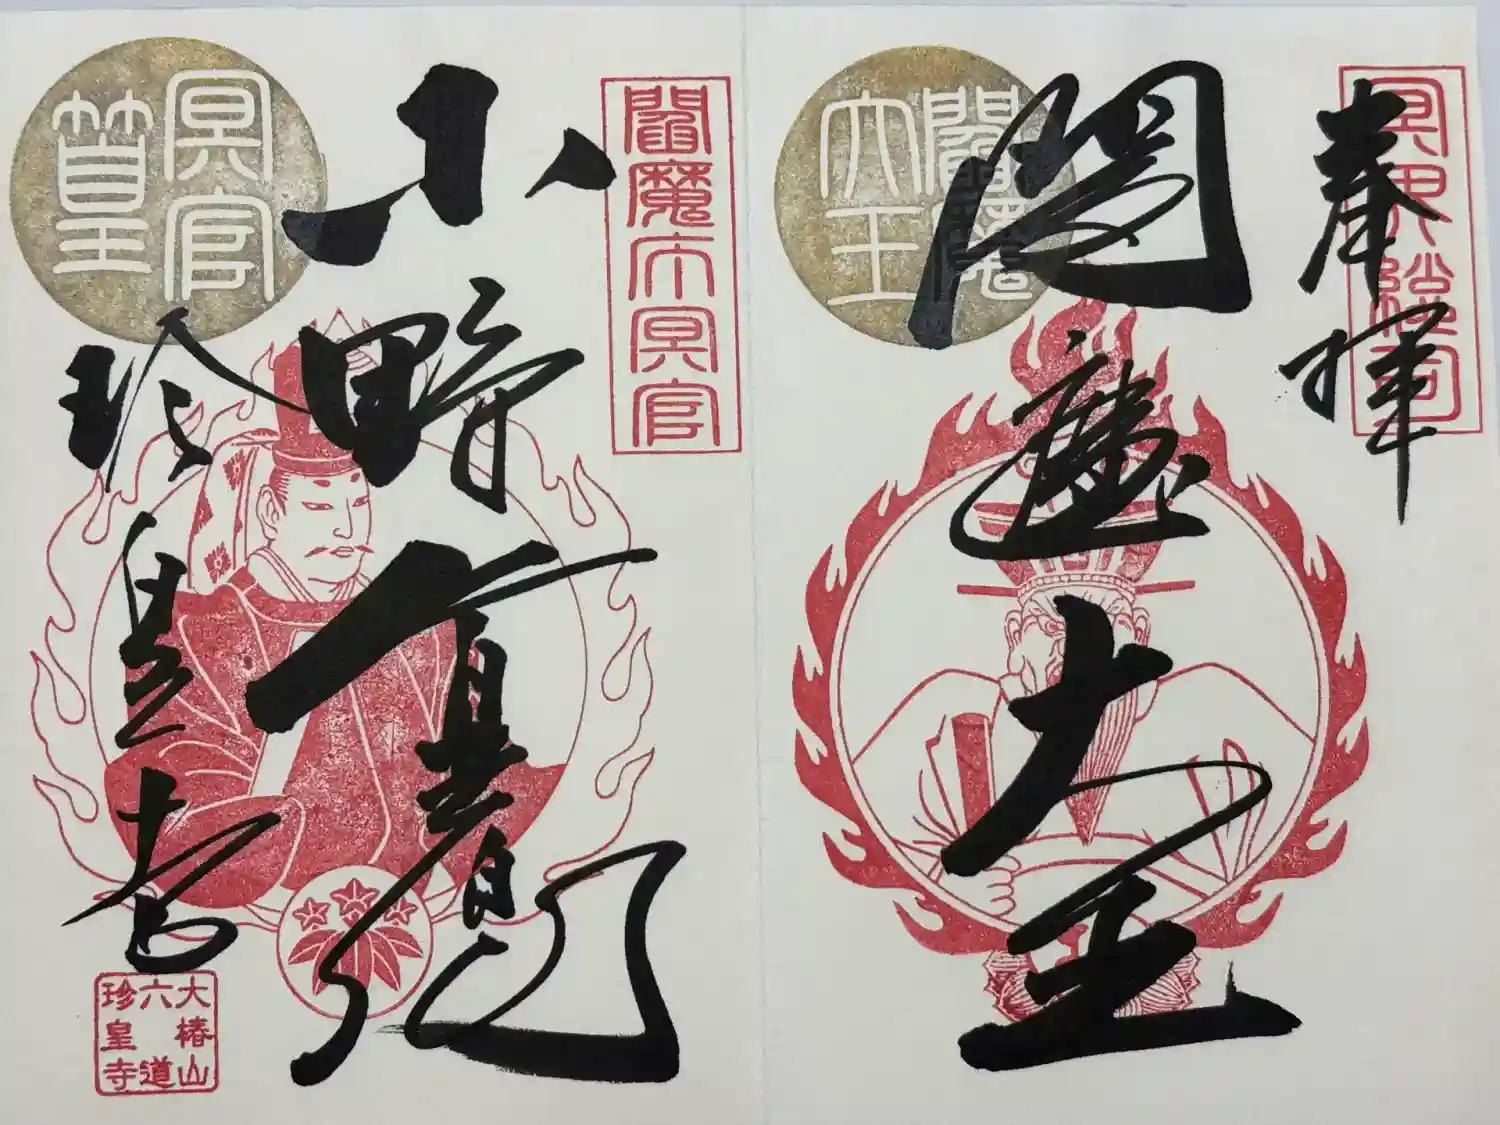 奉拝
閻魔大王
閻魔大王
閻魔庁冥官
小野
冥官
篁
珍皇寺
大椿山
六道
珍皇寺